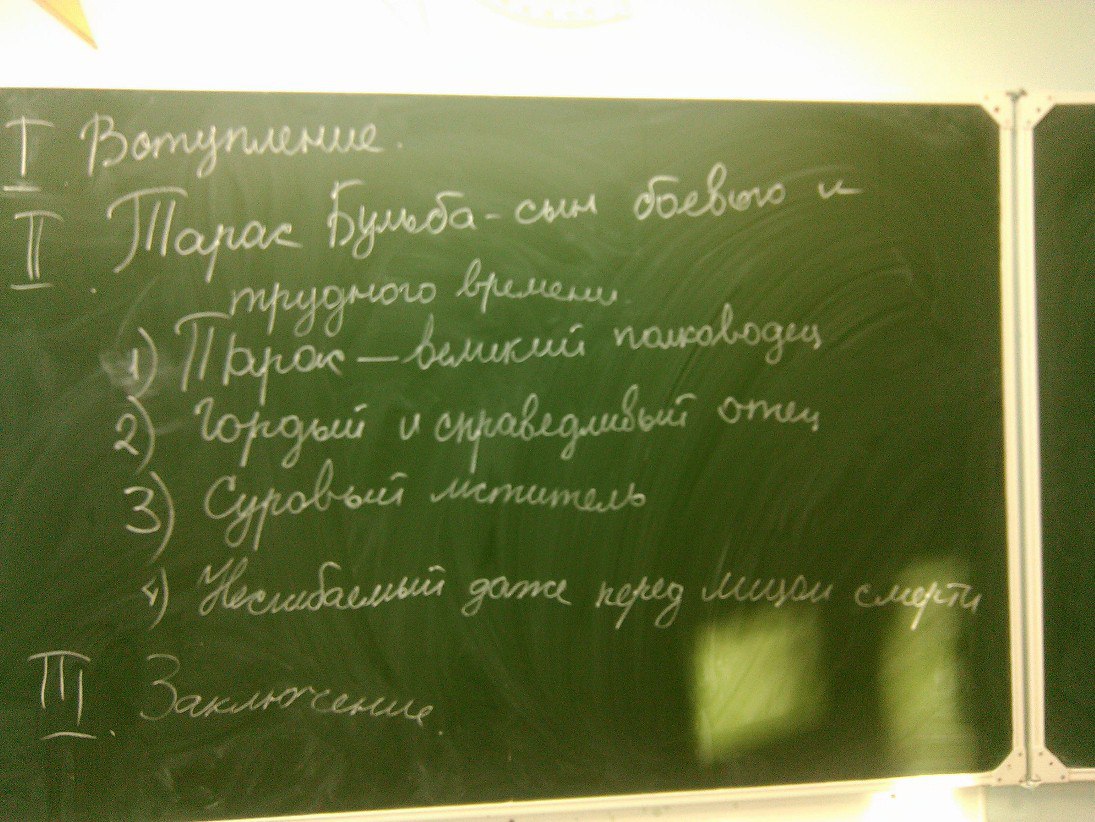 I. Вступление.
II. Тарас Бульба - сын боевого и
трудного времени.
1) Тарас – великий полководец
2) Гордый и справедливый отец
3) Суровый мститель
4) Несгибаемый даже перед лицом смерти
III. Заключение.